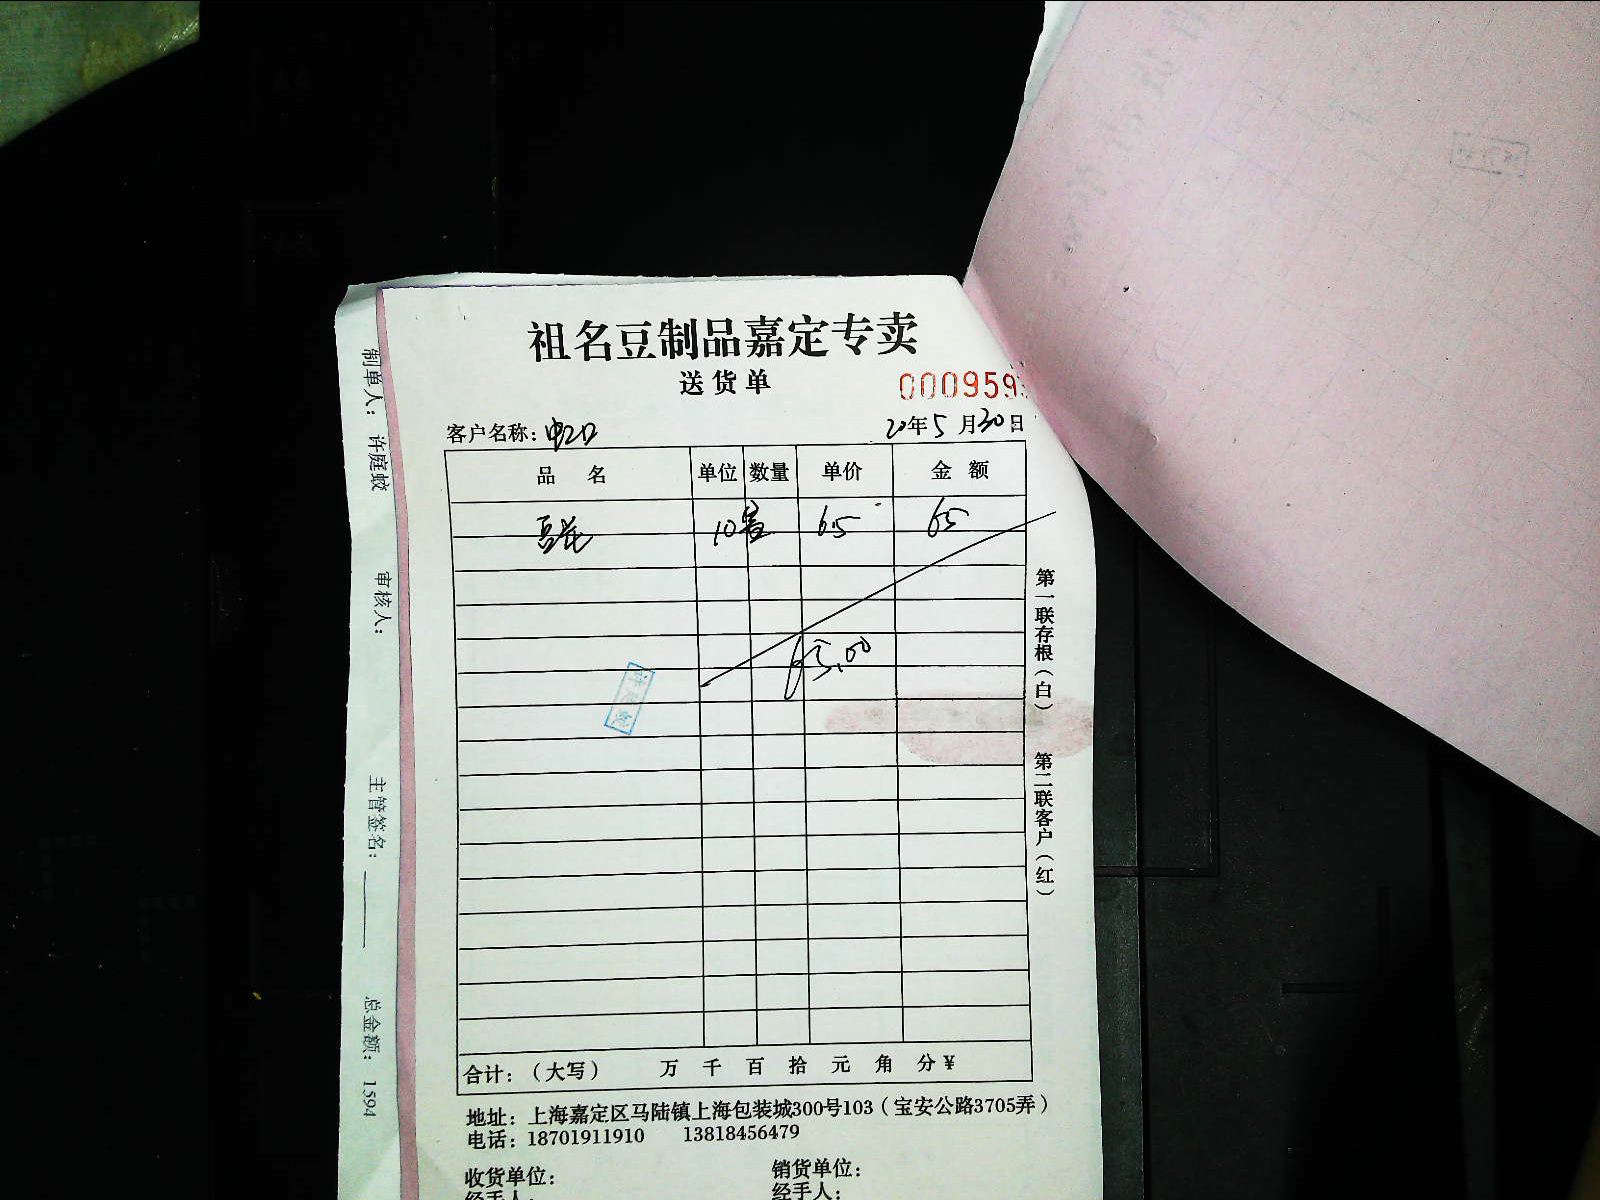 祖名豆制品嘉定专卖
送货单
000959
客户名称：
20年5月30日
品名 单位 数量 单价 金额
豆花 10盒 6.5 65
65.00
合计：（大写） 万 千 百 拾 元 角 分 ¥
地址：上海嘉定区马陆镇上海包装城300号103（宝安公路3705弄）
电话：18701911910 13818456479
收货单位： 销货单位：
经手人： 经手人：
第一联存根（白） 第二联客户（红）
制单人：许庭蛟 审核人： 主管签名： 总金额：1594